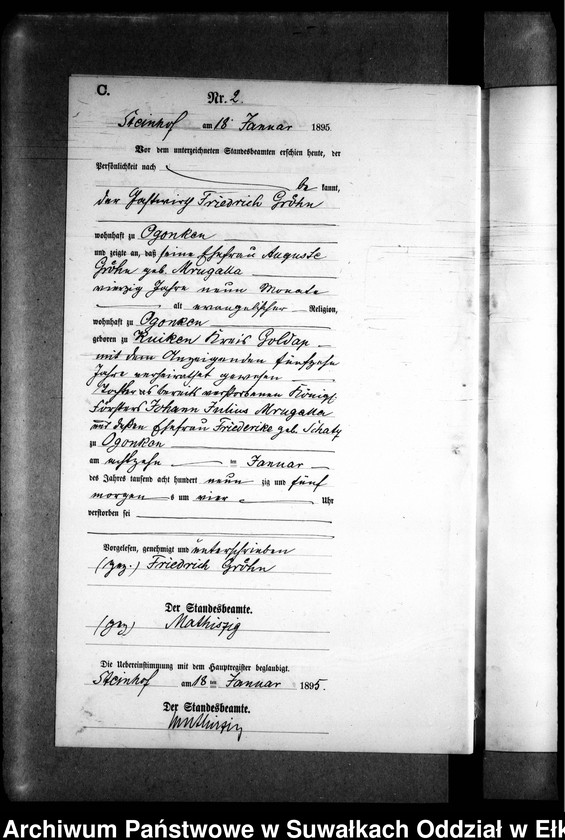 C.
Nr. 2.
Steinhof am 18 Januar 1895.
Vor dem unterzeichneten Standesbeamten erschien heute, der
Persönlichkeit nach
be kannt,
der Gastwirth Friedrich Gröhn
wohnhaft zu Ogonken
und zeigte an, daß seine Ehefrau Auguste
Gröhn geb. Mrugalla
vierzig Jahre neun Monate
alt evangelischer Religion,
wohnhaft zu Ogonken
geboren zu Kuiken Kreis Goldap
mit dem Anzeigenden fünfzehn
Jahre verheirathet gewesen
Tochter des bereits verstorbenen Königl.
Försters Johann Julius Mrugalla
und deßen Ehefrau Friederike geb. Schatz
zu Ogonken
am achtzehn ten Januar
des Jahres tausend acht hundert neun zig und fünf
morgens um vier Uhr
verstorben sei
Vorgelesen, genehmigt und unterschrieben
(gez.) Friedrich Gröhn
Der Standesbeamte.
(gez) Mathiszig
Die Uebereinstimmung mit dem Hauptregister beglaubigt.
Steinhof am 18 ten Januar 1895.
Der Standesbeamte.
Mathiszig
Archiwum Państwowe w Suwałkach Oddział w Ełk